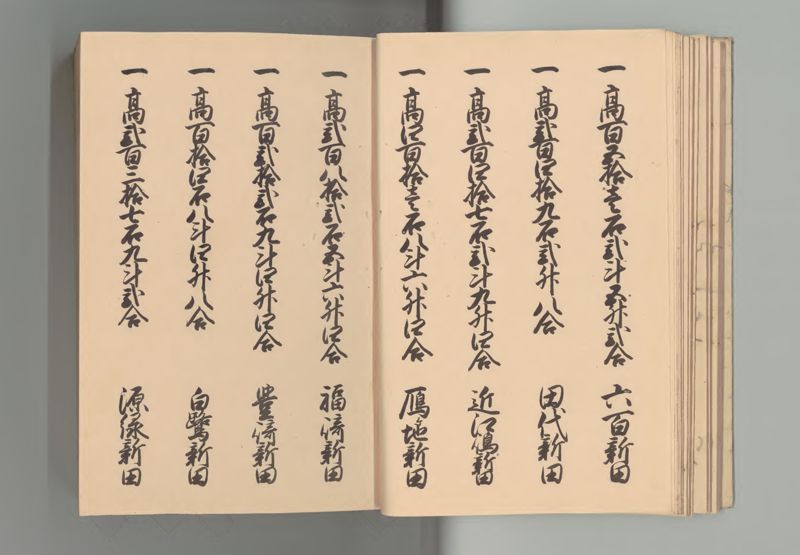 一 高百五拾壱石弐斗五升弐合 六百新田
一 高弐百四拾九石弐升八合 田代新田
一 高弐百四拾七石弐斗九升四合 近江嶋新田
一 高四百拾壱石八斗六升四合 鴈地新田
一 高弐百八拾弐石五斗六升四合 福崎新田
一 高百弐拾弐石九斗四升四合 豊崎新田
一 高百拾四石八斗四升八合 白鷺新田
一 高弐百三拾七石九斗弐合 源緑新田